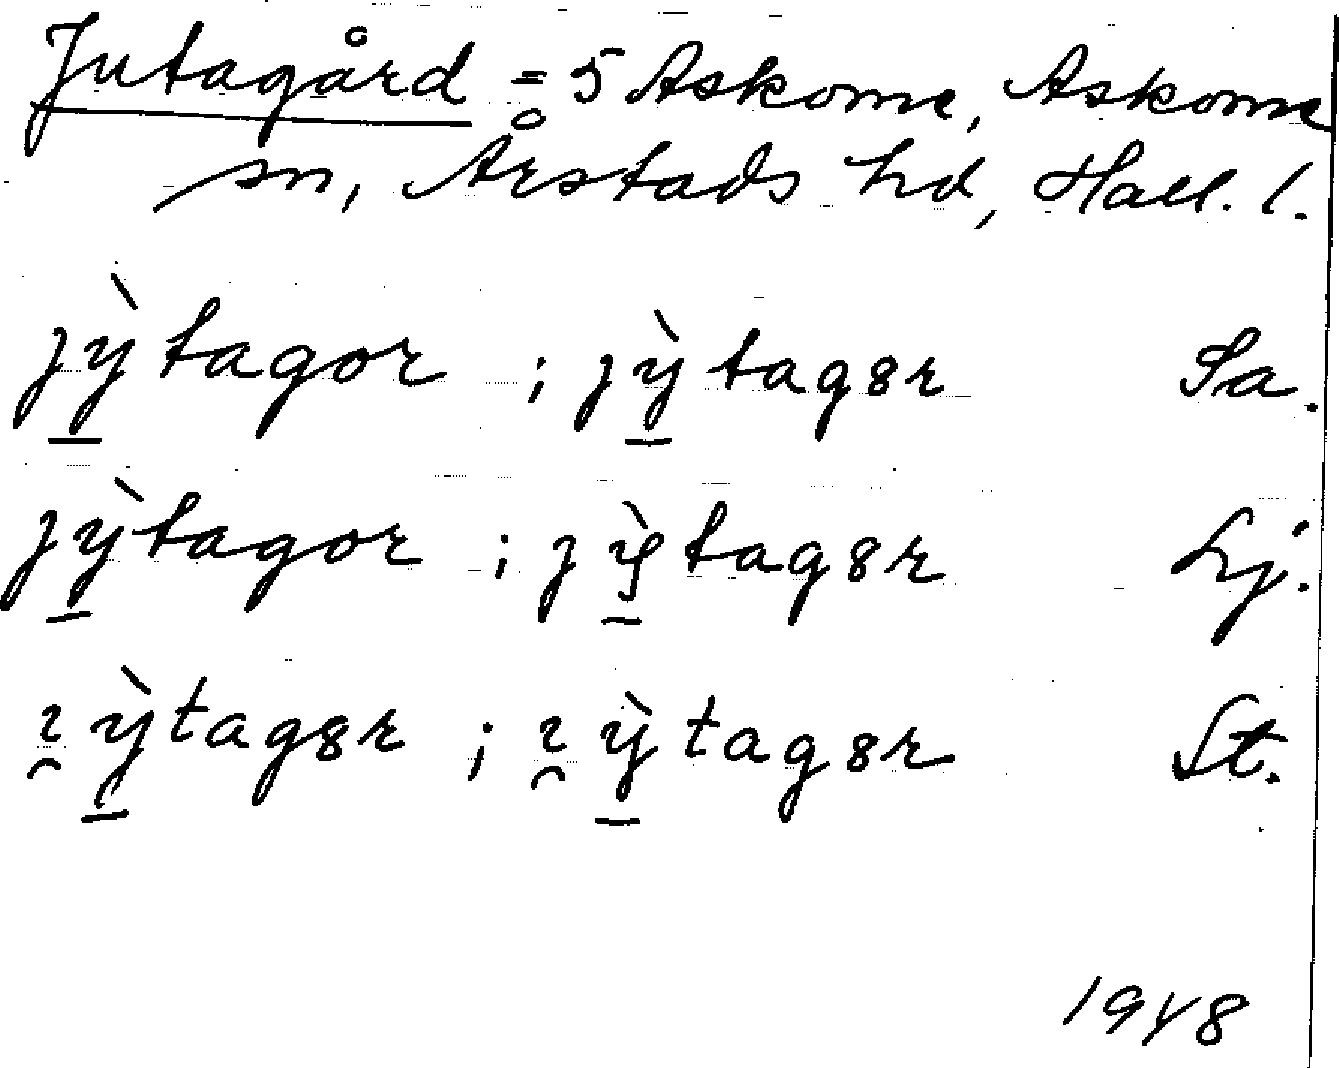 Jutagård = 5 Askome, Askome
sn, Årstads hd, Hall. l.
jỳ̠tagor ; jỳ̠tag8r Sa.
jỳ̠tagor ; jỳ̠tag8r Lj.
ɿ̯ỳ̠tag8r ; ɿ̯ỳ̠tag8r St.
1948